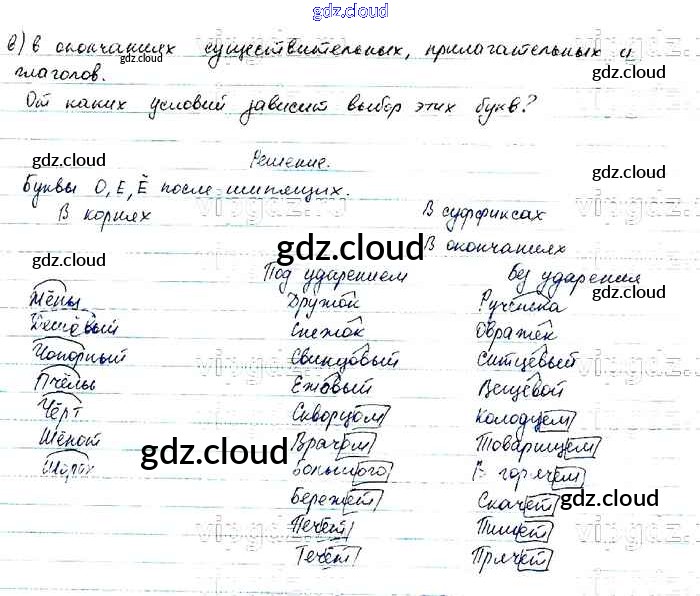 gdz.cloud
в) в окончаниях существительных, прилагательных и
gdz.cloud
глаголов.
gdz.cloud
От каких условий зависит выбор этих букв?
gdz.cloud
gdz.cloud
gdz.cloud
Решение.
Буквы О, Е, Ё после шипящих.
В корнях В суффиксах
gdz.cloud
В окончаниях
gdz.cloud
Под ударением Без ударения
gdz.cloud
Жёны Дружок Ручёнка
Дешёвый Снежок Овражек
Чопорный Свинцовый Ситцевый
Пчёлы Ежовый Вещевой
gdz.cloud
Чёрт Скворцом Колодцем
Шёпот Врачом Товарищем
gdz.cloud
Шорох Большого В горячем
Бережёт Скачет
gdz.cloud
Печёт Пишет
Течёт Прячет